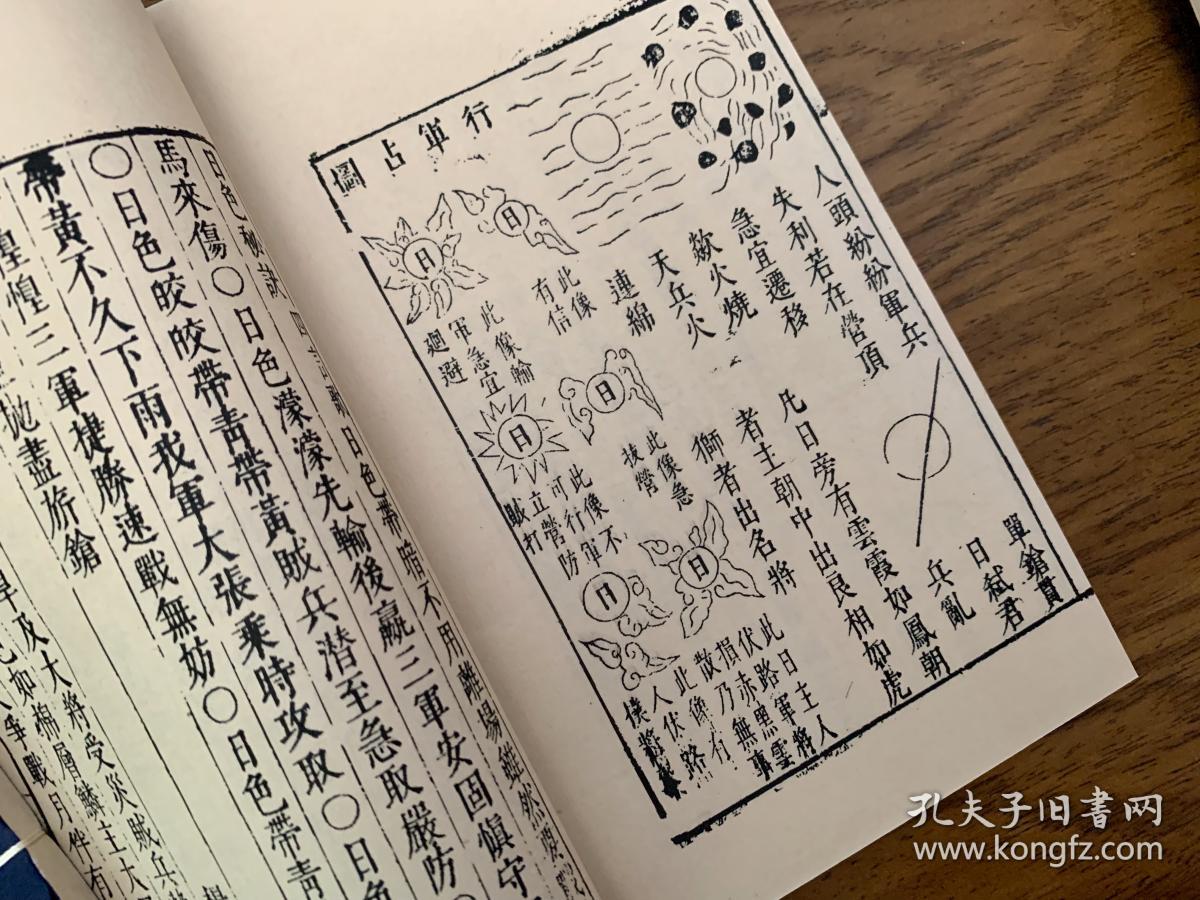 行軍占圖
人頭紛紛軍兵
失利若在營頂
急宜遷移
歘火燒
天兵火
連綿
單鎗貫
日弒君
兵亂
凡日旁有雲霞如鳳朝
者主朝中出良相如虎
獅者出名將
日
此像
有信
日
此像輪
軍急宜
廻避
日
此像急
拔營
日
此像不
可行軍
立營防
賊打
日
日
此日主人
伏路軍將
損赤黑雲
散乃無事
此像有
人伏路
日色秘訣
日色帶暗不用離場雖然
馬來傷○日色濛濛先輸後贏三軍安固慎守
○日色皎皎帶青帶黃賊兵潜至急取嚴防○
帶黃不久下雨我軍大張乘時攻取○日色
煌煌三軍捷勝速戰無妨○日色帶青
拋盡旂鎗
及大將受災賊兵
如棉層鱗主大
爭戰月伴有
孔夫子旧書网
www.kongfz.com